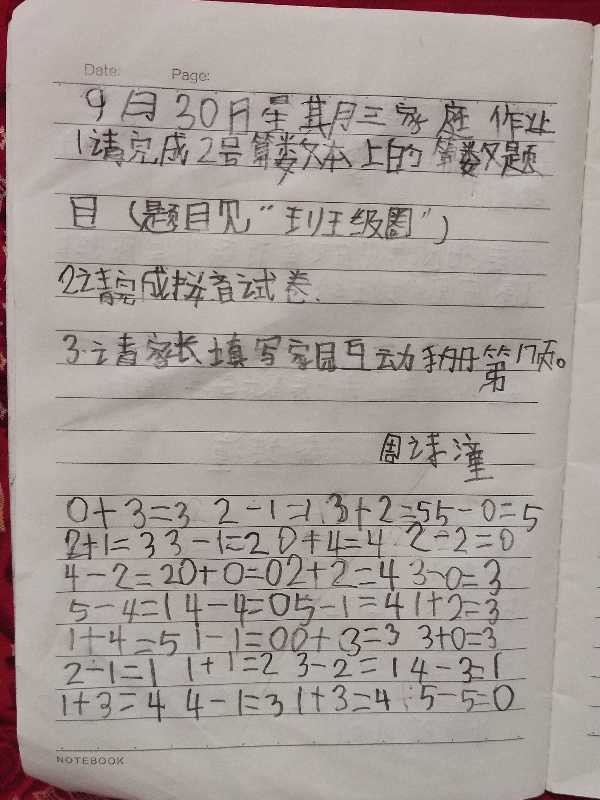 Date: Page:
9月30月星其月三家庭作业
1请完成2号算数本上的算数题
目(题目见"班级圈")
2.请完成拼音试卷.
3.请家长填写家园互动手册第17页。
0+3=3 2-1=1 3+2=5 5-0=5
2+1=3 3-1=2 0+4=4 2-2=0
4-2=2 0+0=0 2+2=4 3-0=3
5-4=1 4-4=0 5-1=4 1+2=3
1+4=5 1-1=0 0+3=3 3+0=3
2-1=1 1+1=2 3-2=1 4-3=1
1+3=4 4-1=3 1+3=4 5-5=0
NOTEBOOK